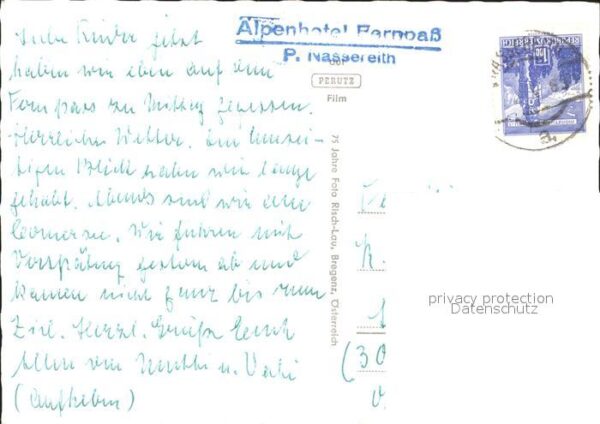 Alpenhotel Fernpaß
P. Nassereith
auf
PERUTZ
Film
75 Jahre Foto Risch-Lau, Bregenz, Österreich
Liebe Kinder jetzt
haben wir eben auf dem
Fernpass zu Mittag gegessen.
Herrliches Wetter. Den umsei-
tigen Blick haben wir lange
gehabt. Abends sind wir am
Comersee. Wir fuhren mit
Verspätung gestern ab und
kamen nicht ganz bis zum
Ziel. Herzl. Grüße Euch
Allen von Mutti u. Vati
(Aufheben)
(30
privacy protection
Datenschutz